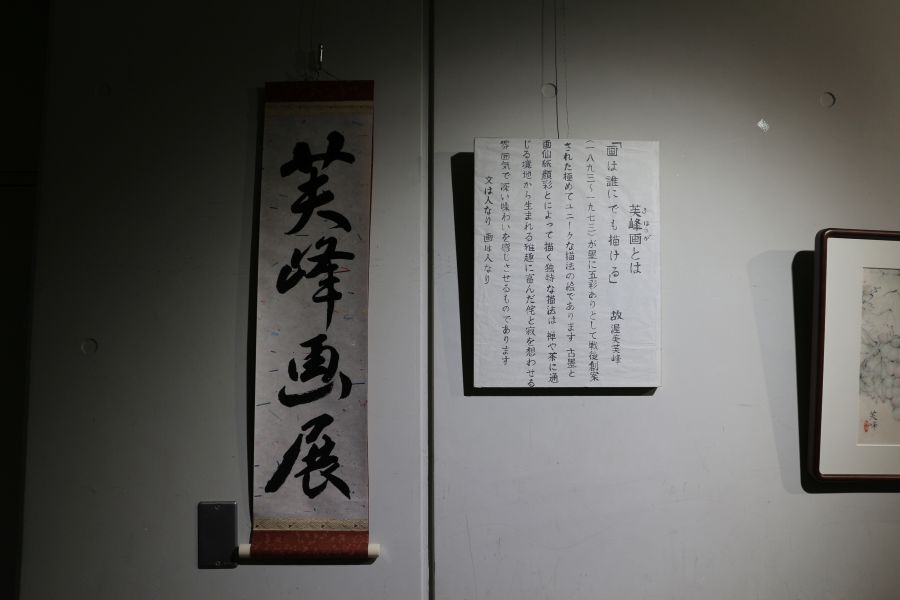 芙峰画展
芙峰画とは
「画は誰にでも描ける」 故 渥美芙峰
(一八九三〜一九七三)が墨に五彩ありとして戦後創案
された極めてユニークな描法の絵であります 古墨と
画仙紙顔彩とによって描く独特な描法は 禅や茶に通
じる境地から生まれる雅趣に富んだ侘と寂を想わせる
雰囲気で深い味わいを感じさせるものであります
文は人なり 画は人なり
芙峰